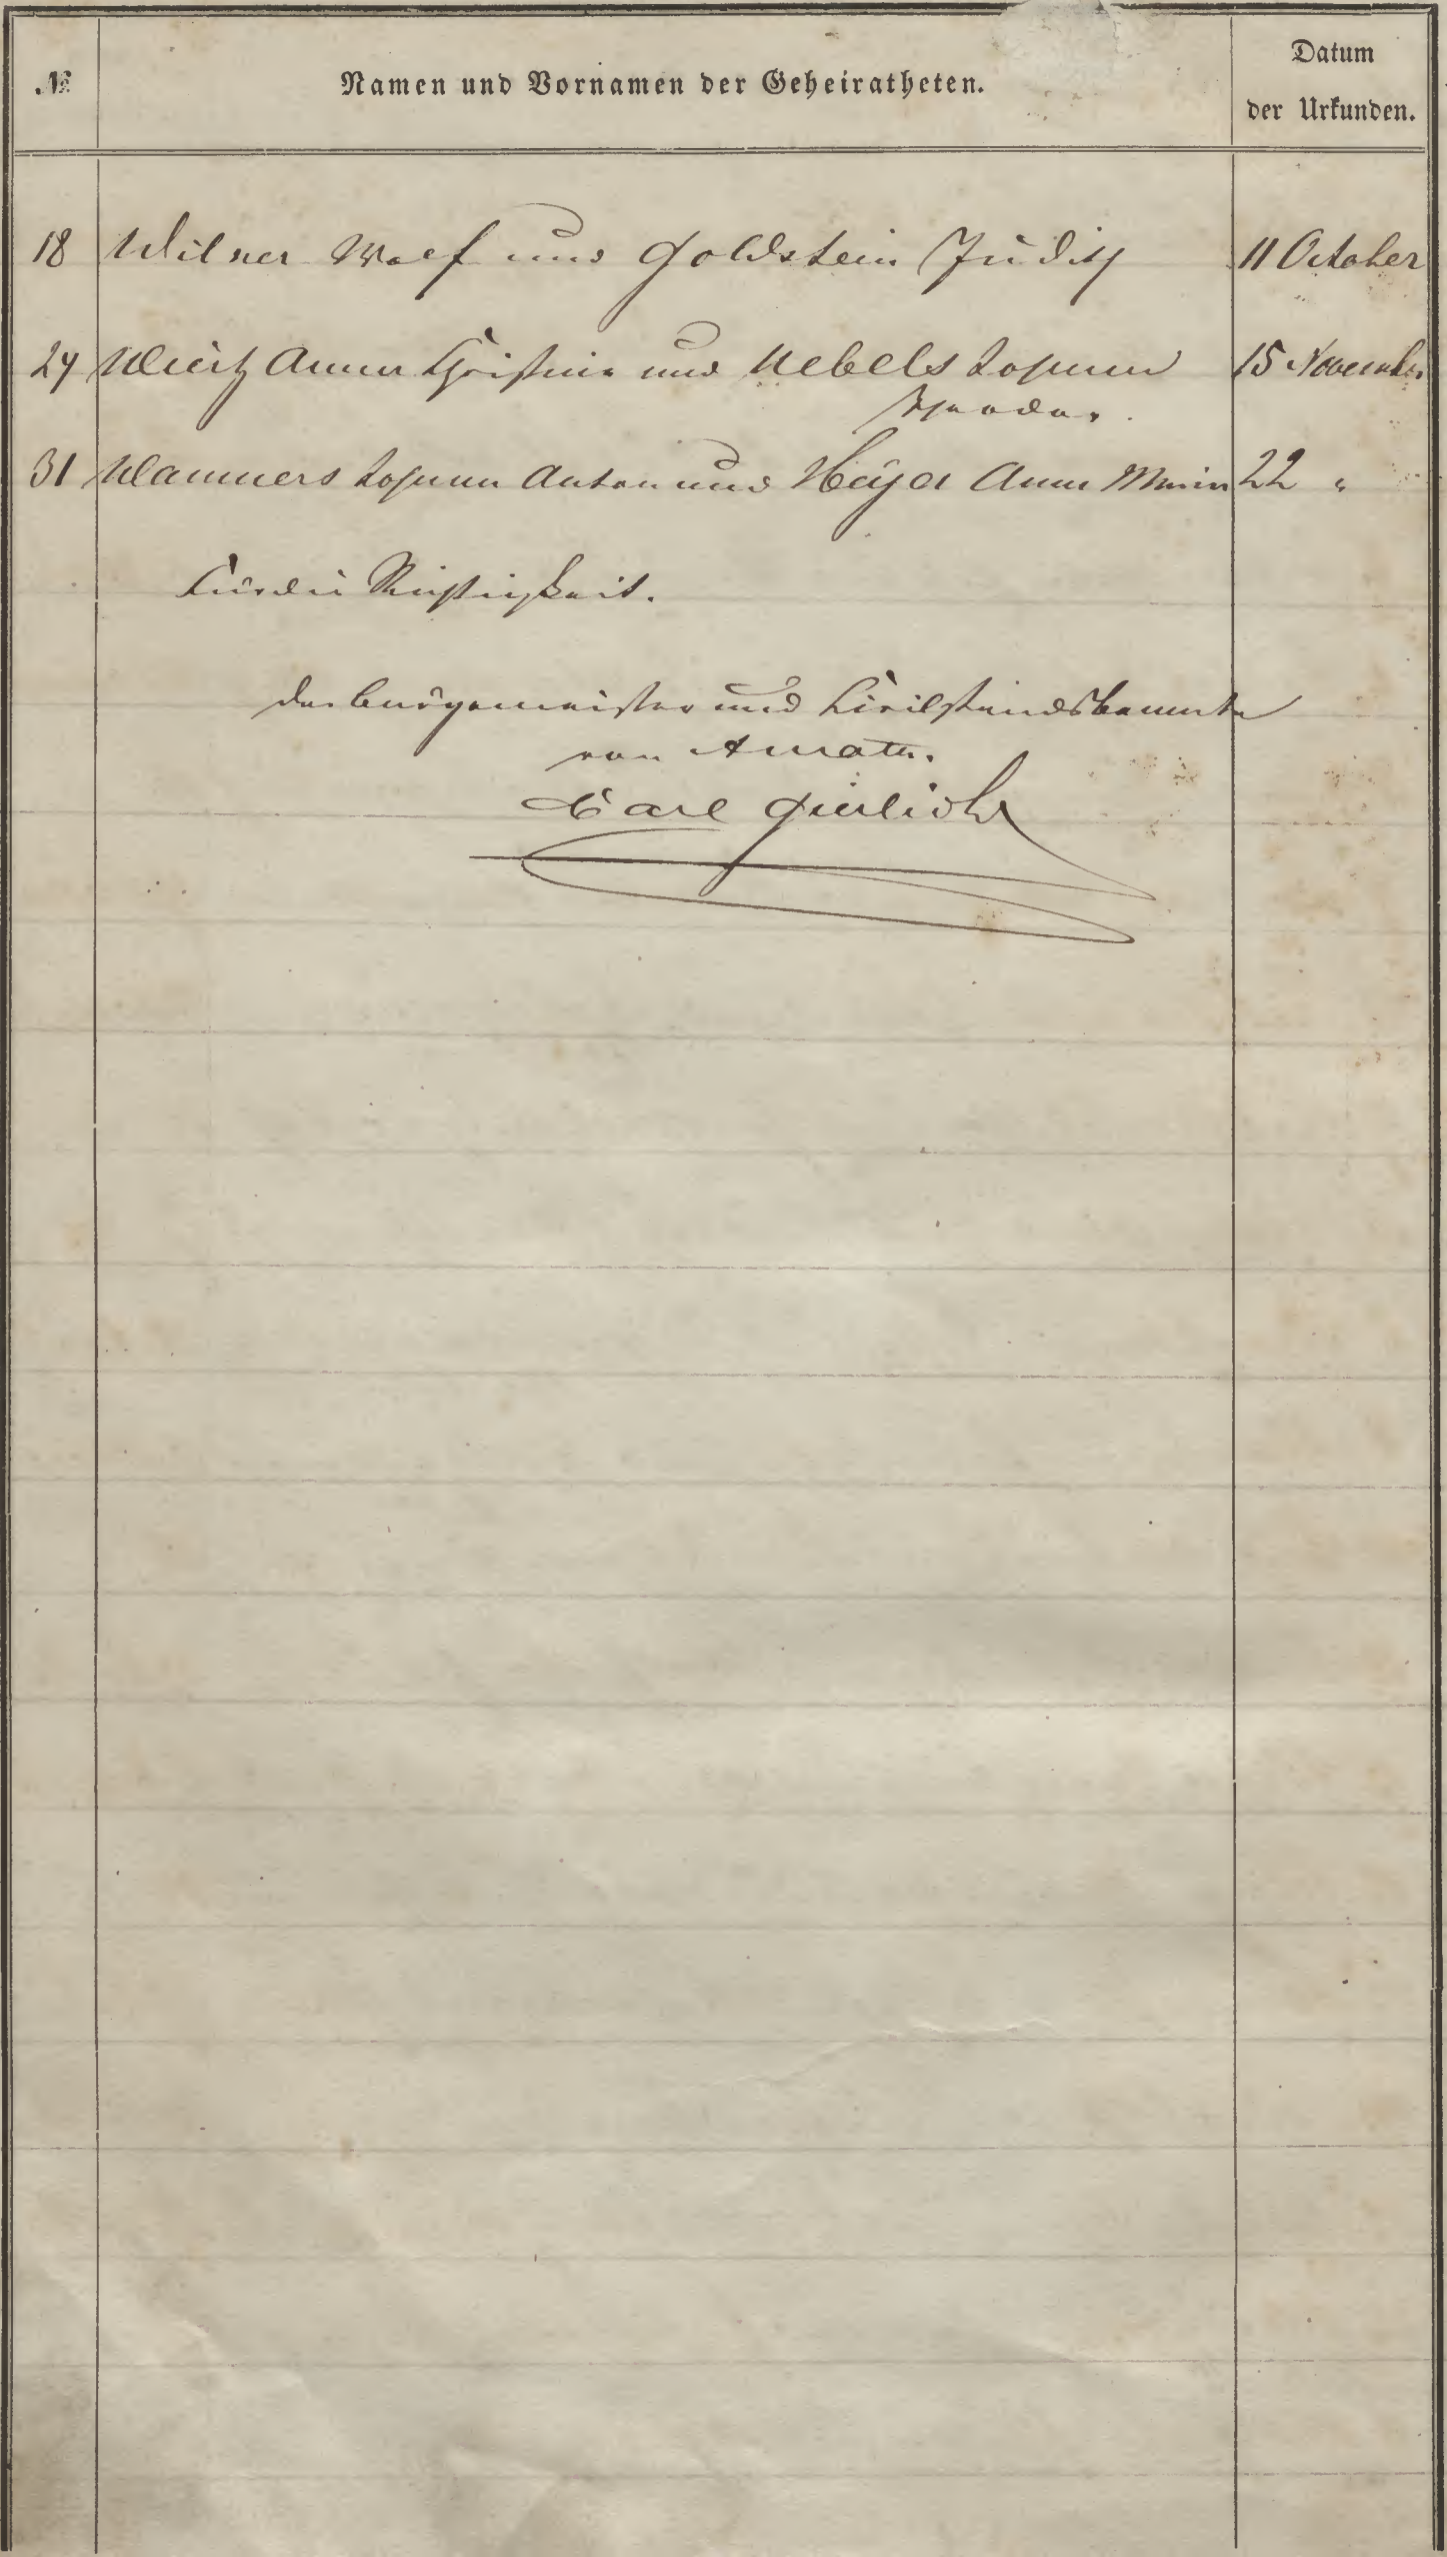 № Namen und Vornamen der Geheiratheten. Datum der Urkunden.
18 Wilner Wolf und Goldstein Judith 11 October
24 Wirtz Anna Christina und Nebels Johann 15 November
Theodor.
31 Wammers Johann Anton und Heyer Anna Maria 22 "
Für die Richtigkeit.
Der Bürgermeister und Civilstandsbeamte
von Anrath.
Carl